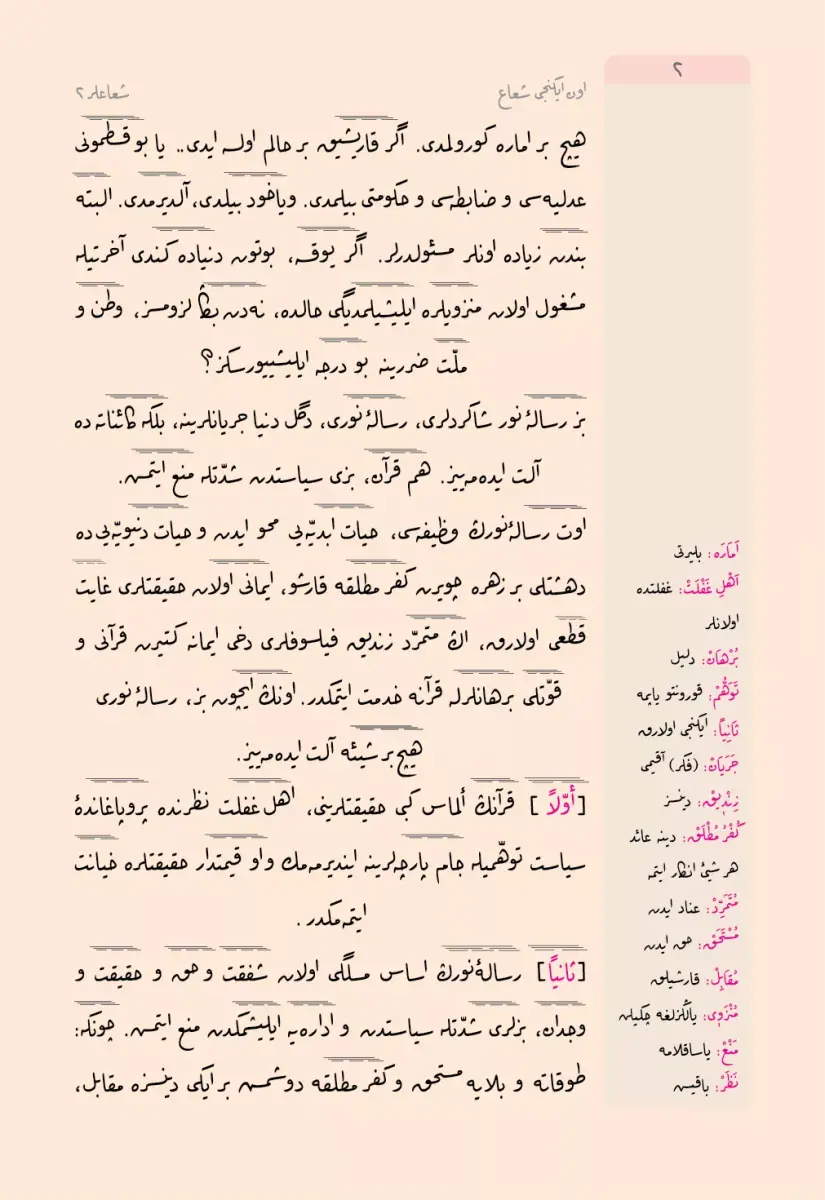 ٢
اون ایکنجی شعاع
شعاعلر ٢
هیچ بر اماره کورولمدی. اگر قاریشیق بر حالم اولسه ایدی.. یا بو قسطمونی
عدلیه‌سی و ضابطه‌سی و حکومتی بیلمدی. ویاخود بیلدی، آلدیرمدی. البته
بندن زیاده اونلر مسئولدرلر. اگر یوقسه، بوتون دنیاده کندی آخرتیله
مشغول اولان منزویلره ایلیشیلمدیگی حالده، نه‌دن بڭا لزومسز، وطن و
ملّت ضررینه بو درجه ایلیشییورسکز؟
بز رسالهٔ نور شاکردلری، رسالهٔ نوری، دگل دنیا جریانلرینه، بلکه کائناته ده
آلت ایده‌مه‌ییز. هم قرآن، بزی سیاستدن شدّتله منع ایتمش.
اوت رسالهٔ نورڭ وظیفه‌سی، حیات ابدیّه‌یی محو ایدن و حیات دنیویّه‌یی ده
دهشتلی بر زهره چویرن کفر مطلقه قارشو، ایمانی اولان حقیقتلری غایت
قطعی اولارق، اڭ متمرّد زندیق فیلسوفلری دخی ایمانه کتیرن قرآنی و
قوّتلی برهانلرله قرآنه خدمت ایتمکدر. اونڭ ایچون بز، رسالهٔ نوری
هیچ بر شیئه آلت ایده‌مه‌ییز.
[أوّلاً] قرآنڭ ألماس کبی حقیقتلرینی، اهل غفلت نظرنده پروپاغاندهٔ
سیاست توهّمیله جام پارچه‌لرینه ایندیرمه‌مك و او قیمتدار حقیقتلره خیانت
ایتمه‌مکدر.
[ثانیاً] رسالهٔ نورڭ اساس مسلگی اولان شفقت و حق و حقیقت و
وجدان، بزلری شدّتله سیاستدن و اداره‌یه ایلیشمکدن منع ایتمش. چونکه:
طوقاته و بلایه مستحق و کفر مطلقه دوشمش بر ایکی دینسزه مقابل،
اَمَارَه: بلیرتی
اَهْلِ غَفْلَتْ: غفلتده
اولانلر
بُرْهَانْ: دلیل
تَوَهُّمْ: قورونتو یاپمه
ثَانِیاً: ایکنجی اولارق
جَرَیَانْ: (فکر) آقیمی
زِنْدِیقْ: دینسز
کُفْرِ مُطْلَقْ: دینه عائد
هر شیئ انکار ایتمه
مُتَمَرِّدْ: عناد ایدن
مُسْتَحَقْ: حق ایدن
مُقَابِلْ: قارشیلق
مُنْزَوِی: یاڭلزلغه چکیلن
مَنْعْ: یاساقلامه
نَظَرْ: باقیش